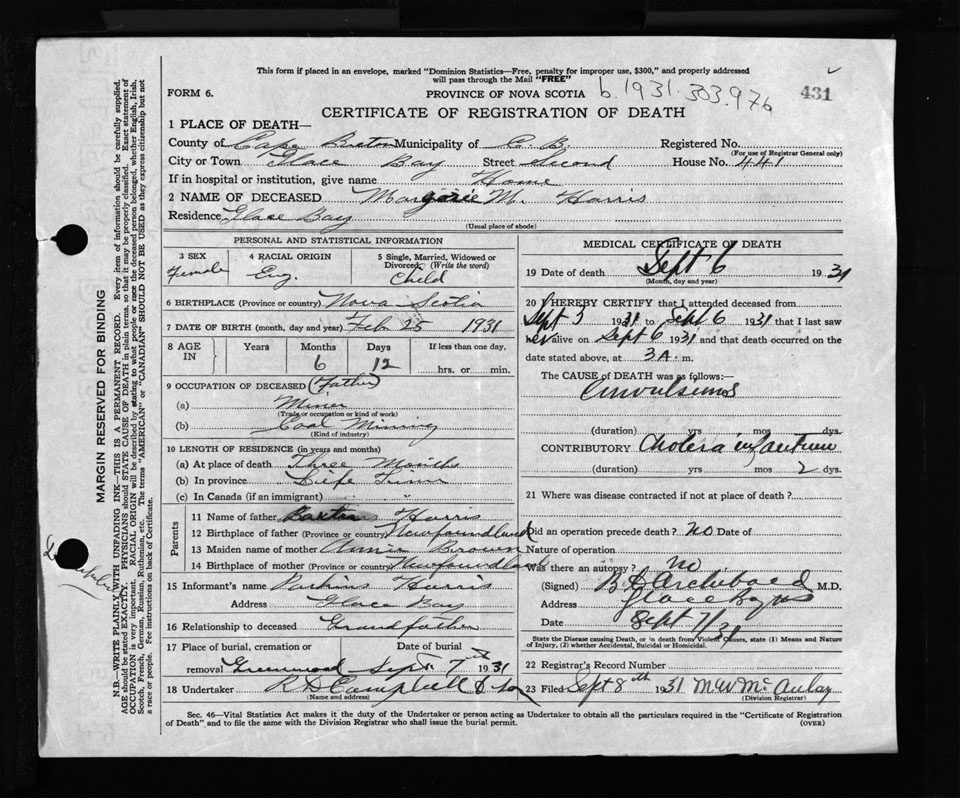 This form if placed in an envelope, marked "Dominion Statistics—Free, penalty for improper use, $300," and properly addressed
will pass through the Mail "FREE"
FORM 6.
PROVINCE OF NOVA SCOTIA
b.1931.303.976
431
CERTIFICATE OF REGISTRATION OF DEATH
1 PLACE OF DEATH—
County of Cape Breton Municipality of C.B. Registered No.
(For use of Registrar General only)
City or Town Glace Bay Street Second House No. 441
If in hospital or institution, give name Home
2 NAME OF DECEASED Margorie M. Harris
Residence Glace Bay
(Usual place of abode)
PERSONAL AND STATISTICAL INFORMATION
3 SEX 4 RACIAL ORIGIN 5 Single, Married, Widowed or
Divorced, (Write the word)
Female Eng. Child
6 BIRTHPLACE (Province or country) Nova Scotia
7 DATE OF BIRTH (month, day and year) Feb 25 1931
8 AGE IN Years Months Days If less than one day,
6 12 hrs. or min.
9 OCCUPATION OF DECEASED (Father)
(a) Miner
(Trade or occupation or kind of work)
(b) Coal Mining
(Kind of industry)
10 LENGTH OF RESIDENCE (in years and months)
(a) At place of death Three Months
(b) In province Life Time
(c) In Canada (if an immigrant) "
Parents
11 Name of father Harris
12 Birthplace of father (Province or country) Newfoundland
13 Maiden name of mother Annie Brown
14 Birthplace of mother (Province or country) Newfoundland
15 Informant's name Harris
Address Glace Bay
16 Relationship to deceased Grandfather
17 Place of burial, cremation or Date of burial
removal Greenwood Sept. 7th 1931
18 Undertaker R D Campbell & Son
(Name and address)
MEDICAL CERTIFICATE OF DEATH
19 Date of death Sept 6 1931
(Month, day and year)
20 I HEREBY CERTIFY that I attended deceased from
Sept 3 1931 to Sept 6 1931 that I last saw
her alive on Sept 6 1931 and that death occurred on the
date stated above, at 3 A. m.
The CAUSE of DEATH was as follows:—
Convulsions
(duration) yrs mos dys.
CONTRIBUTORY Cholera infantum
(duration) yrs mos 2 dys.
21 Where was disease contracted if not at place of death?
Did an operation precede death? No Date of
Nature of operation
Was there an autopsy? No
(Signed) Archibald M.D.
Address Glace Bay NS
Date Sept 7/31
State the Disease causing Death, or in death from Violent Causes, state (1) Means and Nature
of Injury, (2) whether Accidental, Suicidal or Homicidal.
22 Registrar's Record Number
23 Filed Sept 8th 1931 M W McAulay
(Division Registrar)
Sec. 46—Vital Statistics Act makes it the duty of the Undertaker or person acting as Undertaker to obtain all the particulars required in the "Certificate of Registration
of Death" and to file the same with the Division Registrar who shall issue the burial permit. (OVER)
MARGIN RESERVED FOR BINDING
N.B.—WRITE PLAINLY, WITH UNFADING INK—THIS IS A PERMANENT RECORD. Every item of information should be carefully supplied.
AGE should be stated EXACTLY. PHYSICIANS should STATE CAUSE OF DEATH in plain terms, so that it may be properly classified. Exact statement of
OCCUPATION is very important. RACIAL ORIGIN will be described by stating to what people or race the deceased person belonged, whether English, Irish,
Scotch, French, German, Russian, Ruthenian, etc. The terms "AMERICAN" or "CANADIAN" SHOULD NOT BE USED as they express citizenship but not
a race or people. Fee instructions on back of Certificate.